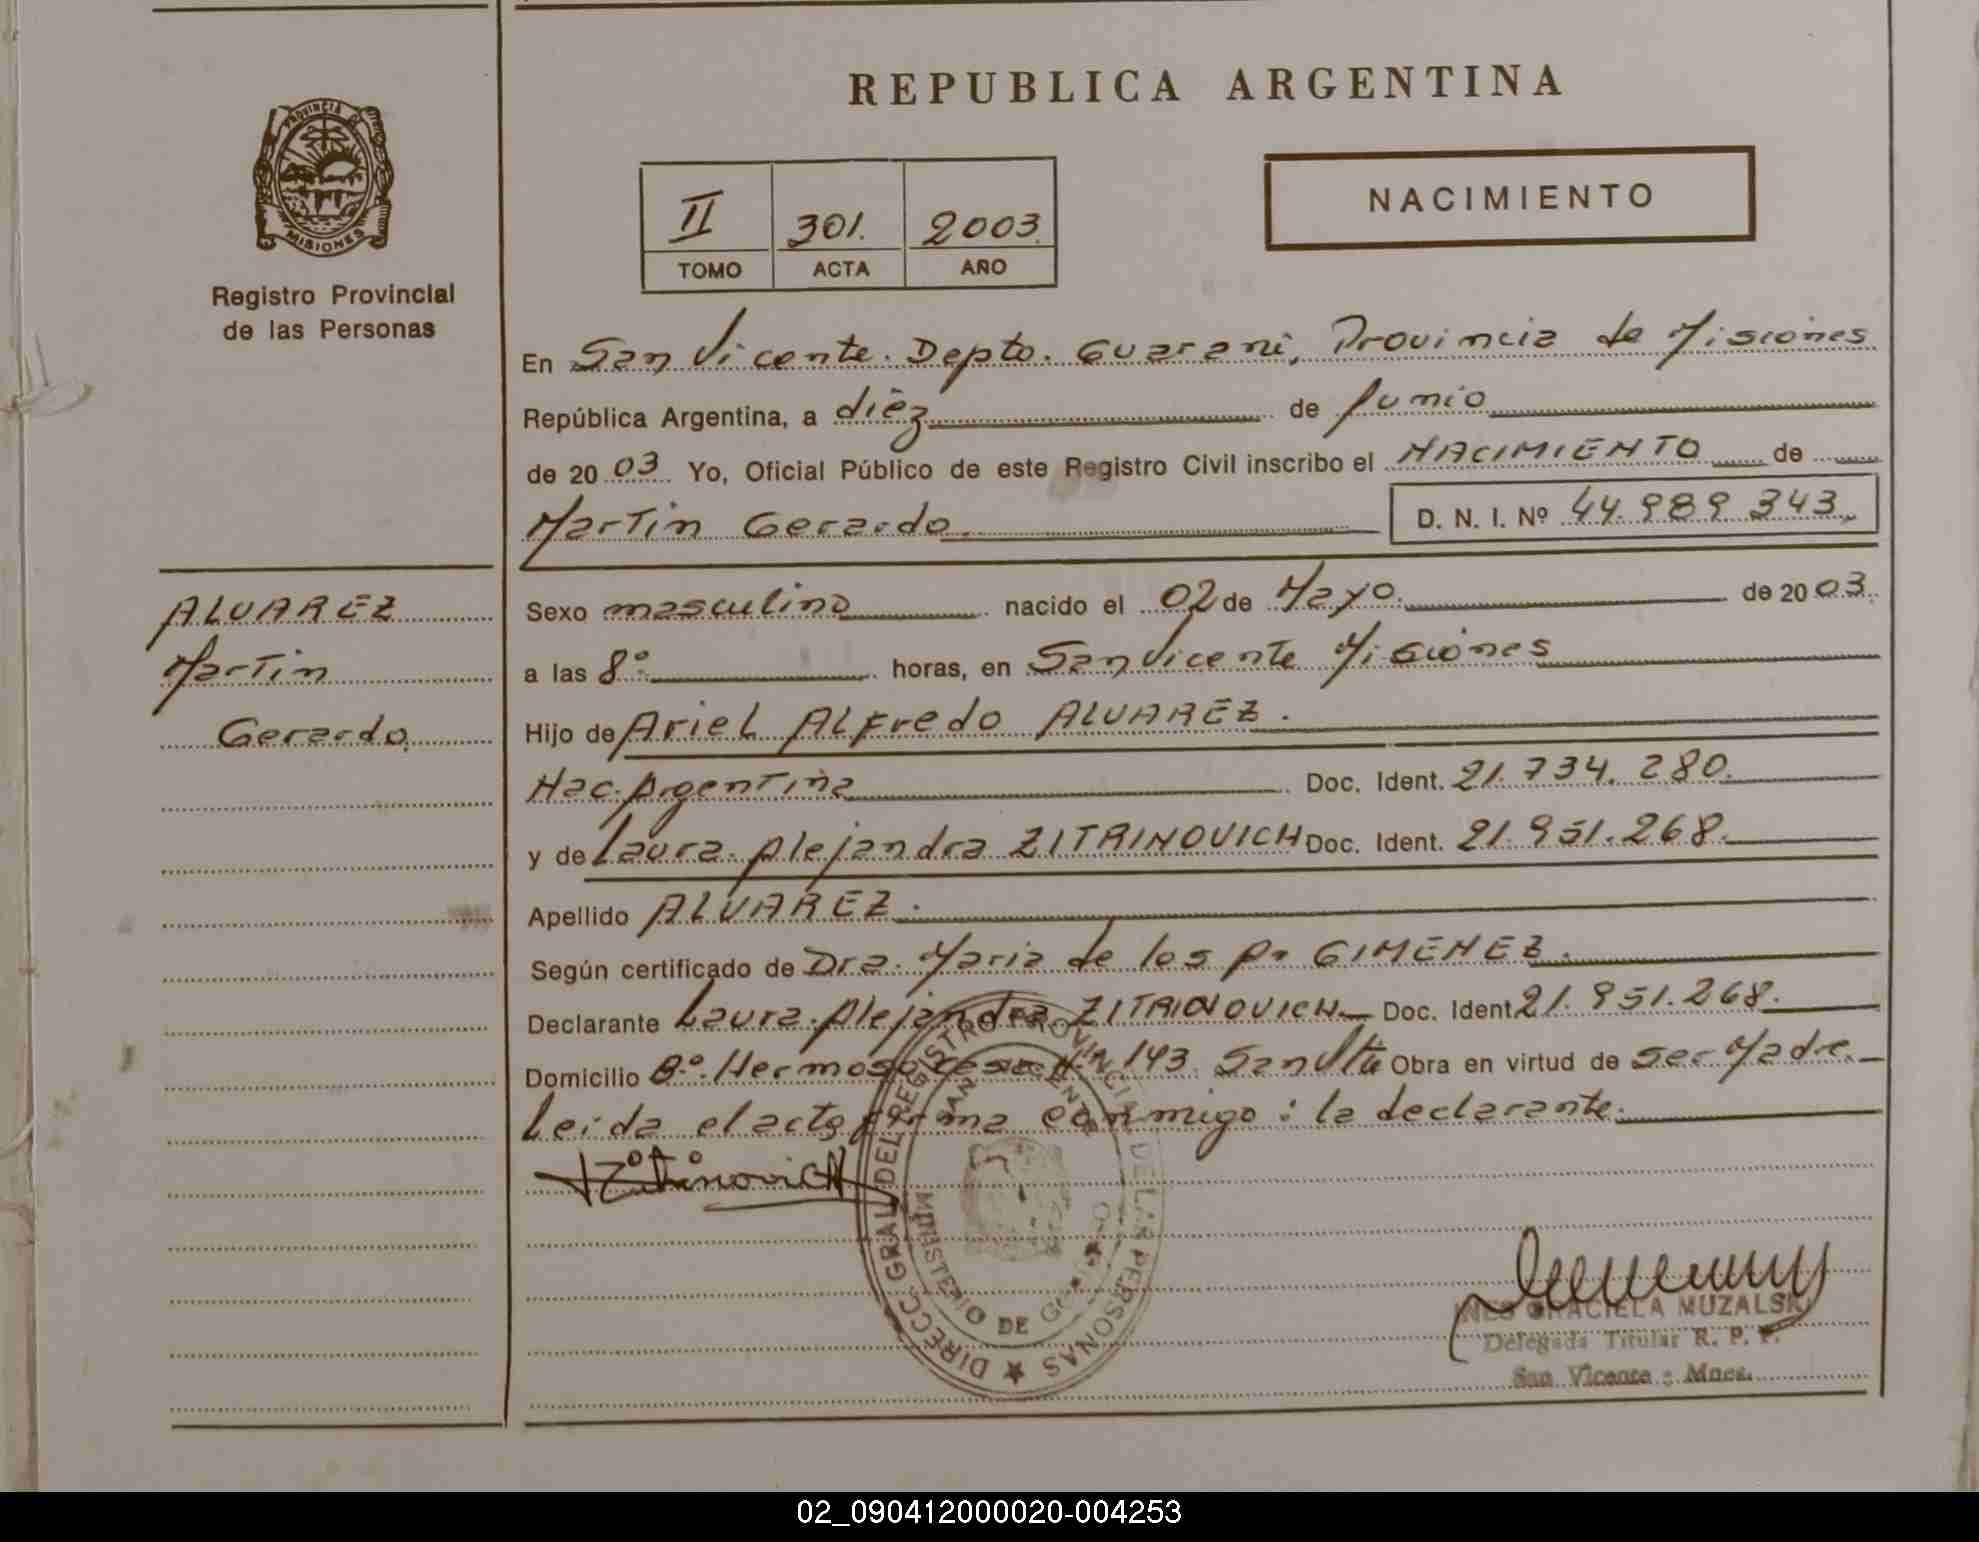 REPUBLICA ARGENTINA
PROVINCIA DE
MISIONES
Registro Provincial
de las Personas
II 301. 2003.
TOMO ACTA AÑO
NACIMIENTO
En San Vicente. Depto. Guaraní, Provincia de Misiones
República Argentina, a diez de Junio
de 20 03 Yo, Oficial Público de este Registro Civil inscribo el NACIMIENTO de
Martin Gerardo. D. N. I. Nº 44.989.343
ALVAREZ
Martin
Gerardo
Sexo masculino nacido el 02 de Mayo de 20 03.
a las 8º horas, en San Vicente Misiones
Hijo de Ariel ALFredo ALVAREZ.
Nac. Argentina Doc. Ident. 21.734.280.
y de Laura Alejandra ZITRINOVICH Doc. Ident. 21.951.268.
Apellido ALVAREZ.
Según certificado de Dra. Maria de los A. GIMENEZ.
Declarante Laura Alejandra ZITRINOVICH Doc. Ident. 21.951.268.
Domicilio Bº. Hermoso 143. San Vte Obra en virtud de ser Madre.
Leida el acto firma conmigo: la declarante.
Zitrinovich
DIRECC. GRAL. DEL REGISTRO PROVINCIAL DE LAS PERSONAS
SAN VICENTE
MINISTERIO DE GOBIERNO
INES GRACIELA MUZALSKI
Delegada Titular R. P. P.
San Vicente - Mnes.
02_090412000020-004253